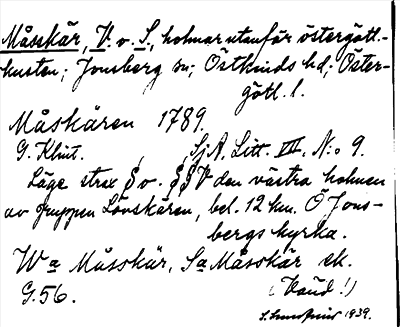 Måsskär, V. o. S., holmar utanför östergötl.-
kusten; Jonsberg sn; Östkinds hd; Öster-
götl. l.
Måskären 1789.
G. Klint. SjA, Litt. VIII, N:o 9.
Läge strax S o. SSV den västra holmen
av gruppen Lönskären, bel. 12 km. Ö Jons-
bergs kyrka.
Wa Måsskär, Sa Måsskär ek.
G. 56.
1939.